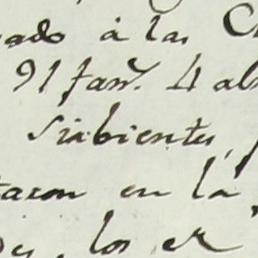 ado á las C
91 fan.s 4 al
Sirbientes,
taron en la
los er